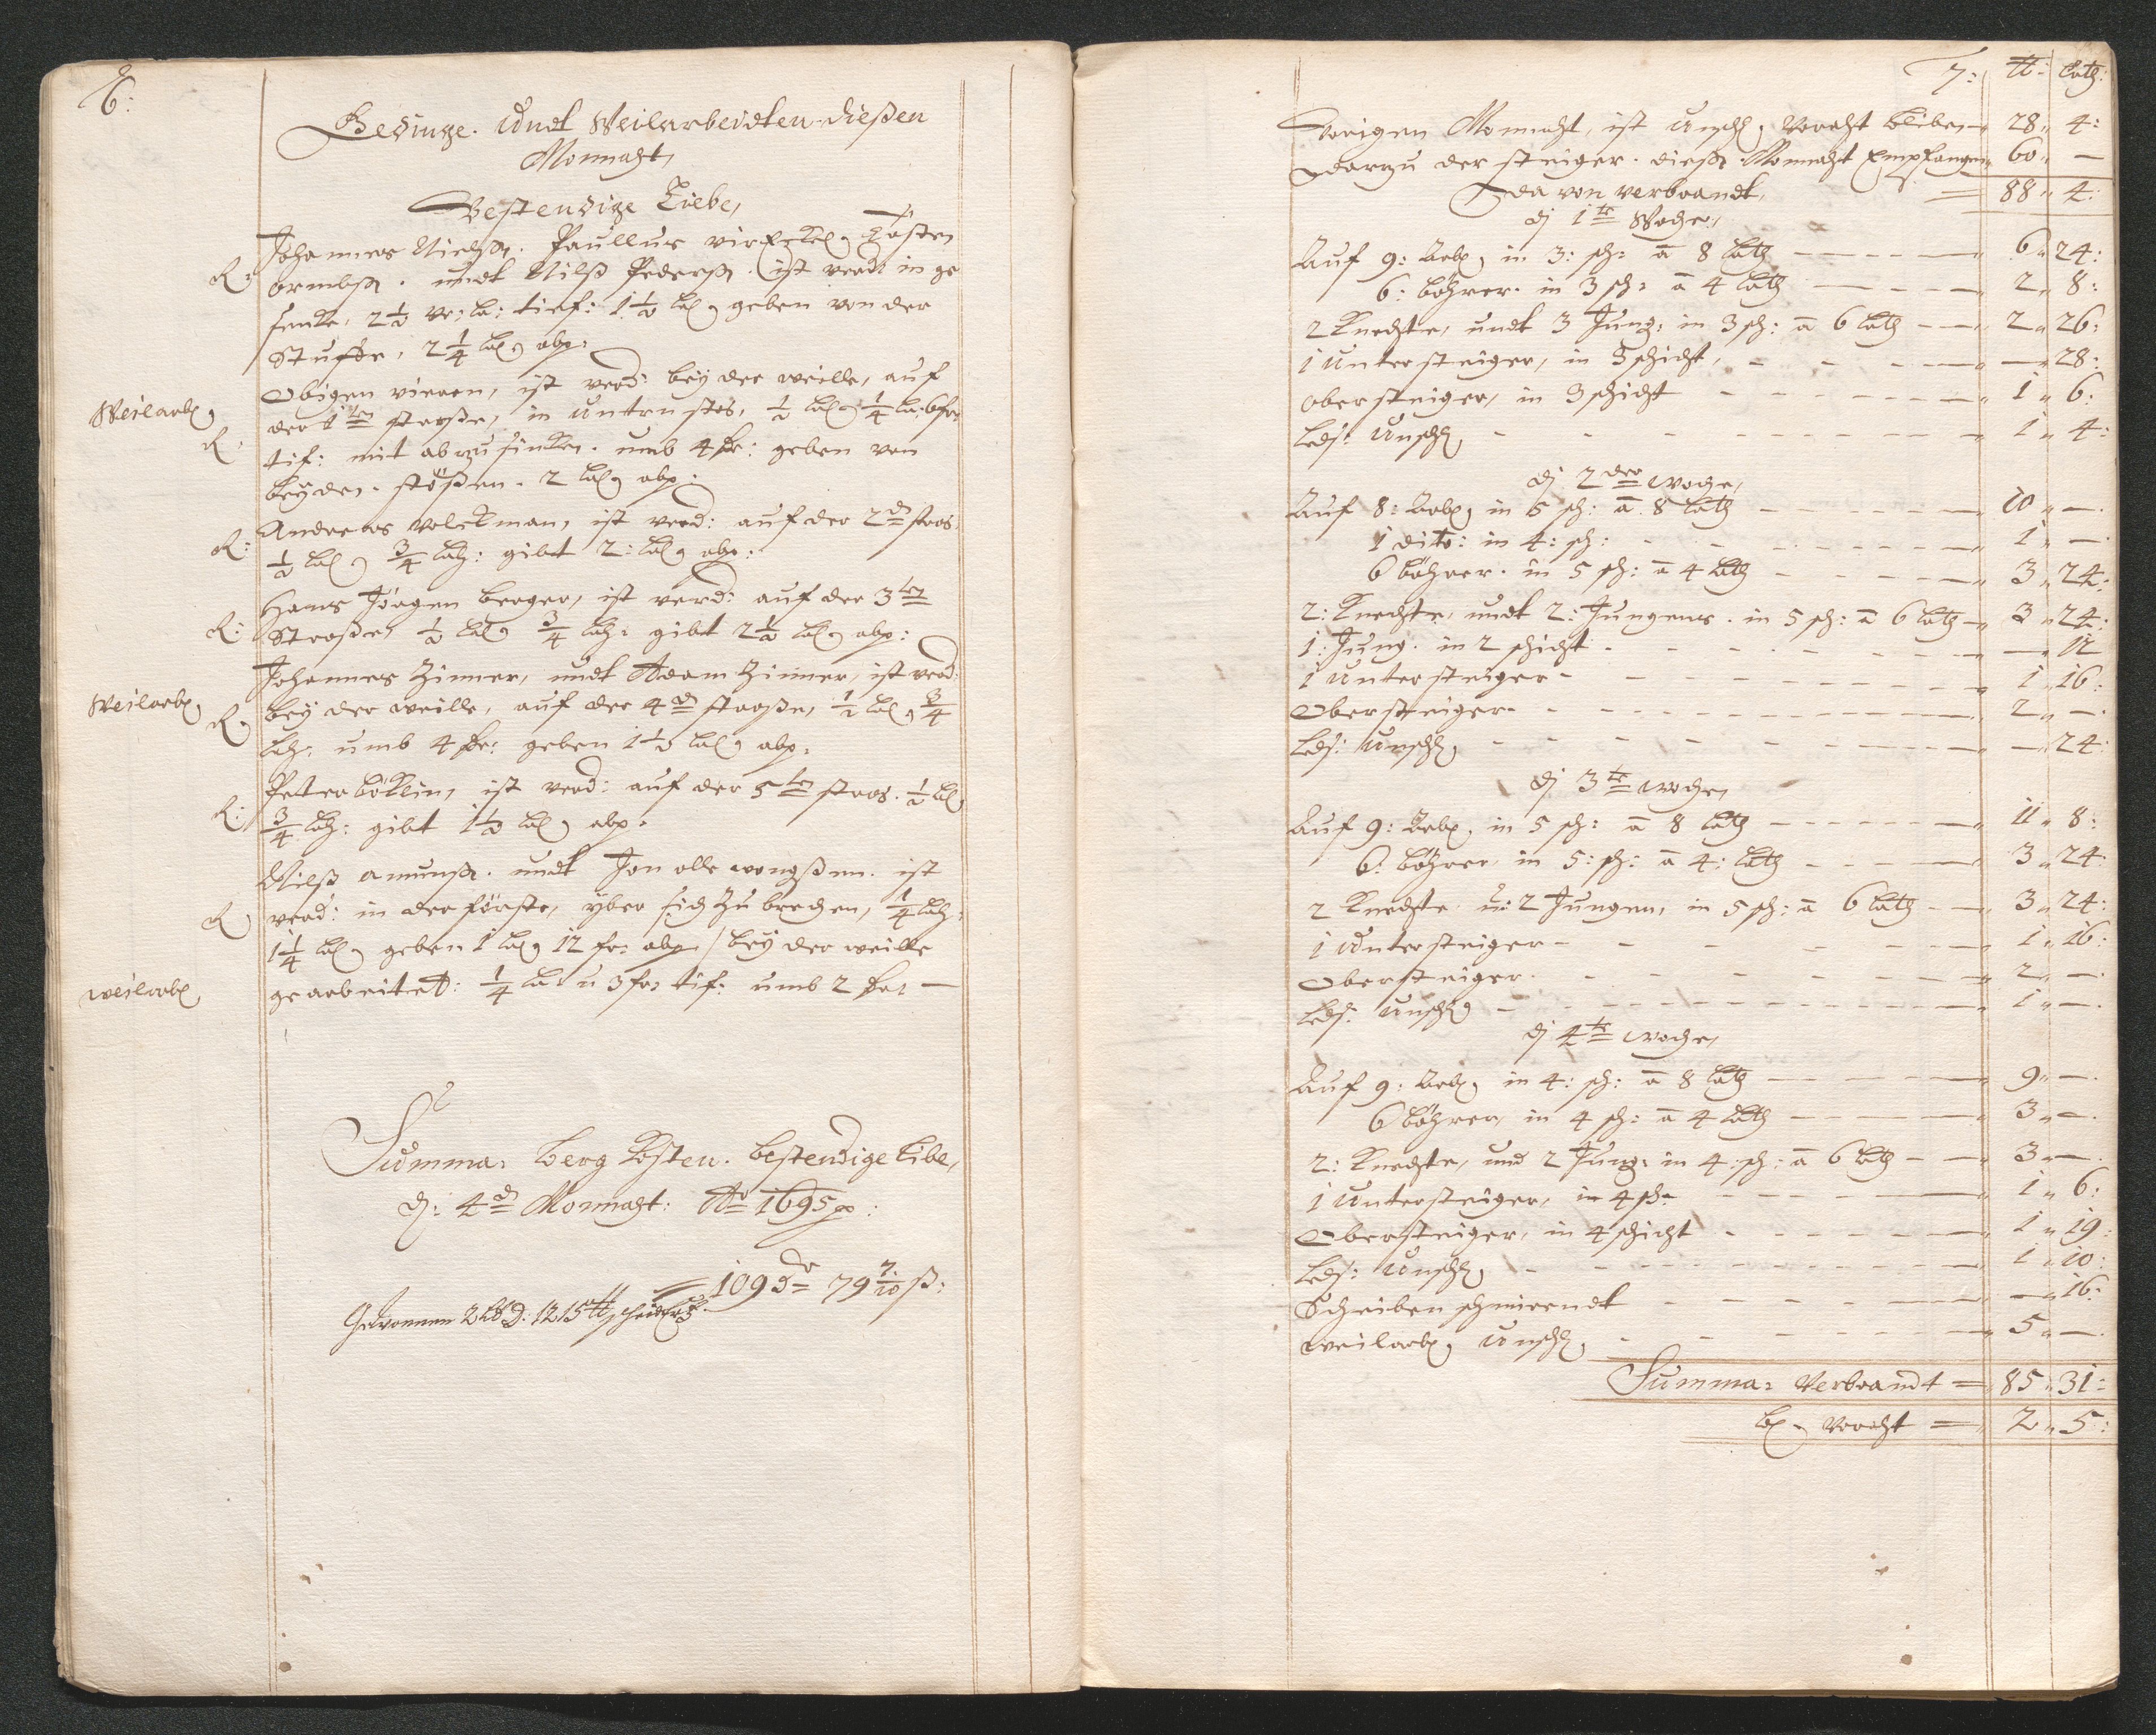 6:
Gedinge. Undt Weilarbeidten dießen
Monnaht,
Bestendige Liebe,
Johannes Nielß. Paullus Tosten
R: ormbß. undt Nilß Pederß. ist verd: in ge
senke, 2½ tief: 1½ lah geben von der
Stuffe, 2¼ lah abp:
Weilarb,
Obigen vieren, ist verd: bey der weille, auf
der 1ten straße, in untrustes, ½ lah ¼ la: 6 fr
R: tif: mit abzusinken. umb 4 fr: geben von
beyden. stößen. 2 lah abp:
Andreas Volckman, ist verd: auf der 2d stros.
R: ½ lah ¾ lah: gibet 2: lah abp:
Hans Jörgen berger, ist verd: auf der 3ten
R: Straße, ½ lah ¾ lah: gibet 2½ lah abp:
Johannes Zimer, undt Adam Zimer, ist verd:
Weilarb,
R bey der weille, auf der 4d straße, ½ lah ¾
lah: umb 4 fr: geben 1½ lah abp:
Peter böklin, ist verd: auf der 5ten stros. ½ lah
R: ¾ lah: gibt 1½ lah abp.
Nilß amunß. undt Jon ist
R verd: in der förste, yber sich zu brechen, ¼ lah:
1¼ lah geben 1 lah 12 fr: abp / bey der weille
weilarb
gearbeitet: ¼ la u 3 fr: tif: umb 2 fr: —
Summa: berg Kosten. bestendige Libe,
d: 4d Monnaht: Ao 1695
= 109 Dr 79 7/10 ß:
Gewonnen 2 12 15 ℔
7: ℔: Loth:
Vorigen Monnaht, ist Unschl, Vorraht bliben 28 " 4:
Darzu der steiger. dieße Monnaht Empfangen 60 " —
Da von verbrandt, = 88 " 4:
di 1te Woche,
Auf 9: Arb, in 3: sch: a 8 Loth — 6 " 24:
6: böhrer. in 3 sch: a 4 Loth — 2 " 8:
2 Knechte, undt 3 Jung: in 3 sch: a 6 Loth — 2 " 26:
1 Untersteiger, in 3 schicht, — — " 28:
obersteiger, in 3 schicht — 1 " 6:
Leds: Unschl, — 1 " 4:
di 2der woche,
Auf 8: Arb, in 5 sch: a 8 Loth — 10 " —
1 dito: in 4: sch: — 1 " —
6 böhrer. in 5 sch: a 4 Loth — 3 " 24:
2: Knechte, undt 2: Jungens. in 5 sch: a 6 Loth — 3 " 24:
1: Jung. in 2 schicht — — " 12
1 Untersteiger — 1 " 16:
Obersteiger. — 2 " —
Leds: Unschl, — — " 24:
di 3te woche,
Auf 9: Arb, in 5 sch: a 8 Loth — 11 " 8:
6: böhrer, in 5: sch: a 4: Loth — 3 " 24:
2 Knechte u: 2 Jungen, in 5 sch: a 6 Loth — 3 " 24:
1 Untersteiger — 1 " 16:
Obersteiger. — 2 " —
Leds: Unschl — 1 " —
di 4te woche,
Auf 9: Arb, in 4: sch: a 8 Loth — 9 " —
6 böhrer, in 4 sch: a 4 Loth — 3 " —
2: Knechte, und 2 Jung: in 4: sch: a 6 Loth — 3 " —
1 Untersteiger, in 4 sch: — 1 " 6:
Obersteiger, in 4 schicht — 1 " 19:
Leds: Unschl, — 1 " 10:
Scheiben schmirendt — — " 16:
weilarb, Unschl, — 5 " —
Summa: Verbrandt = 85 " 31:
bl, Voraht = 2 " 5: